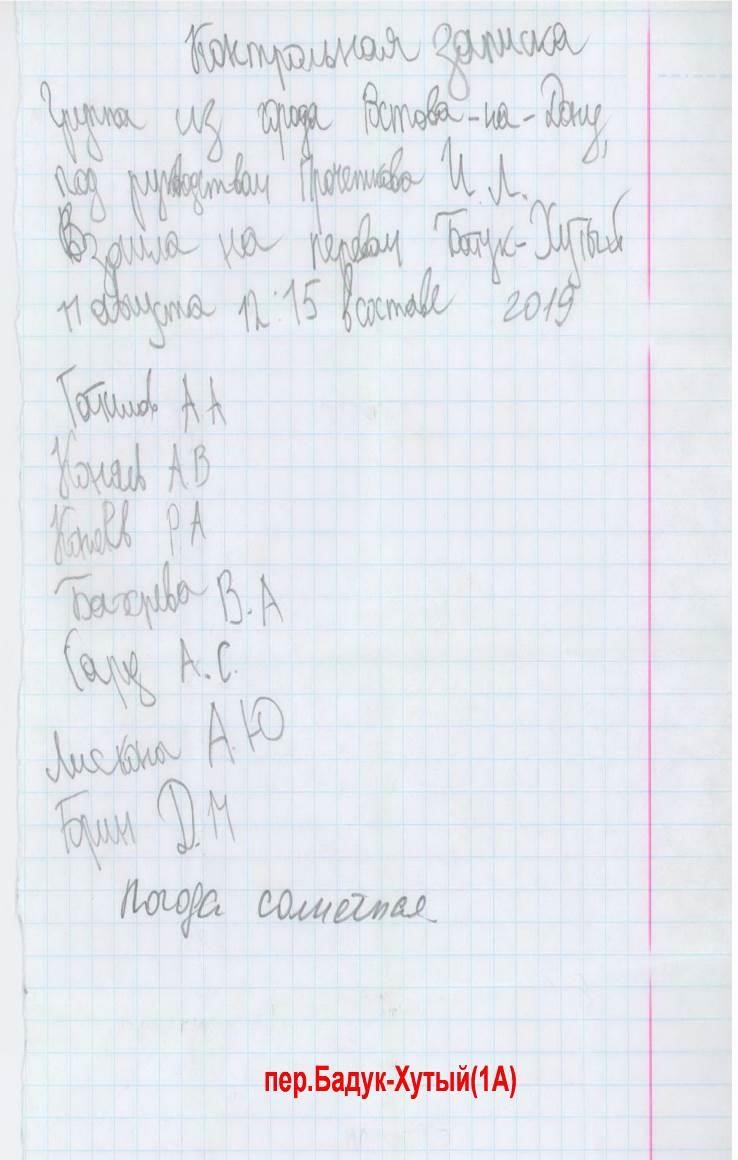 Контрольная записка
Группа из города Ростова-на-Дону,
под руководством И.Л.
Взошла на перевал Бадук-Хутый
11 августа 12:15 в составе 2019
А А
Коняев А В
Р А
В.А
А.С.
А.Ю
Горин Д.М
Погода солнечная
пер.Бадук-Хутый(1А)